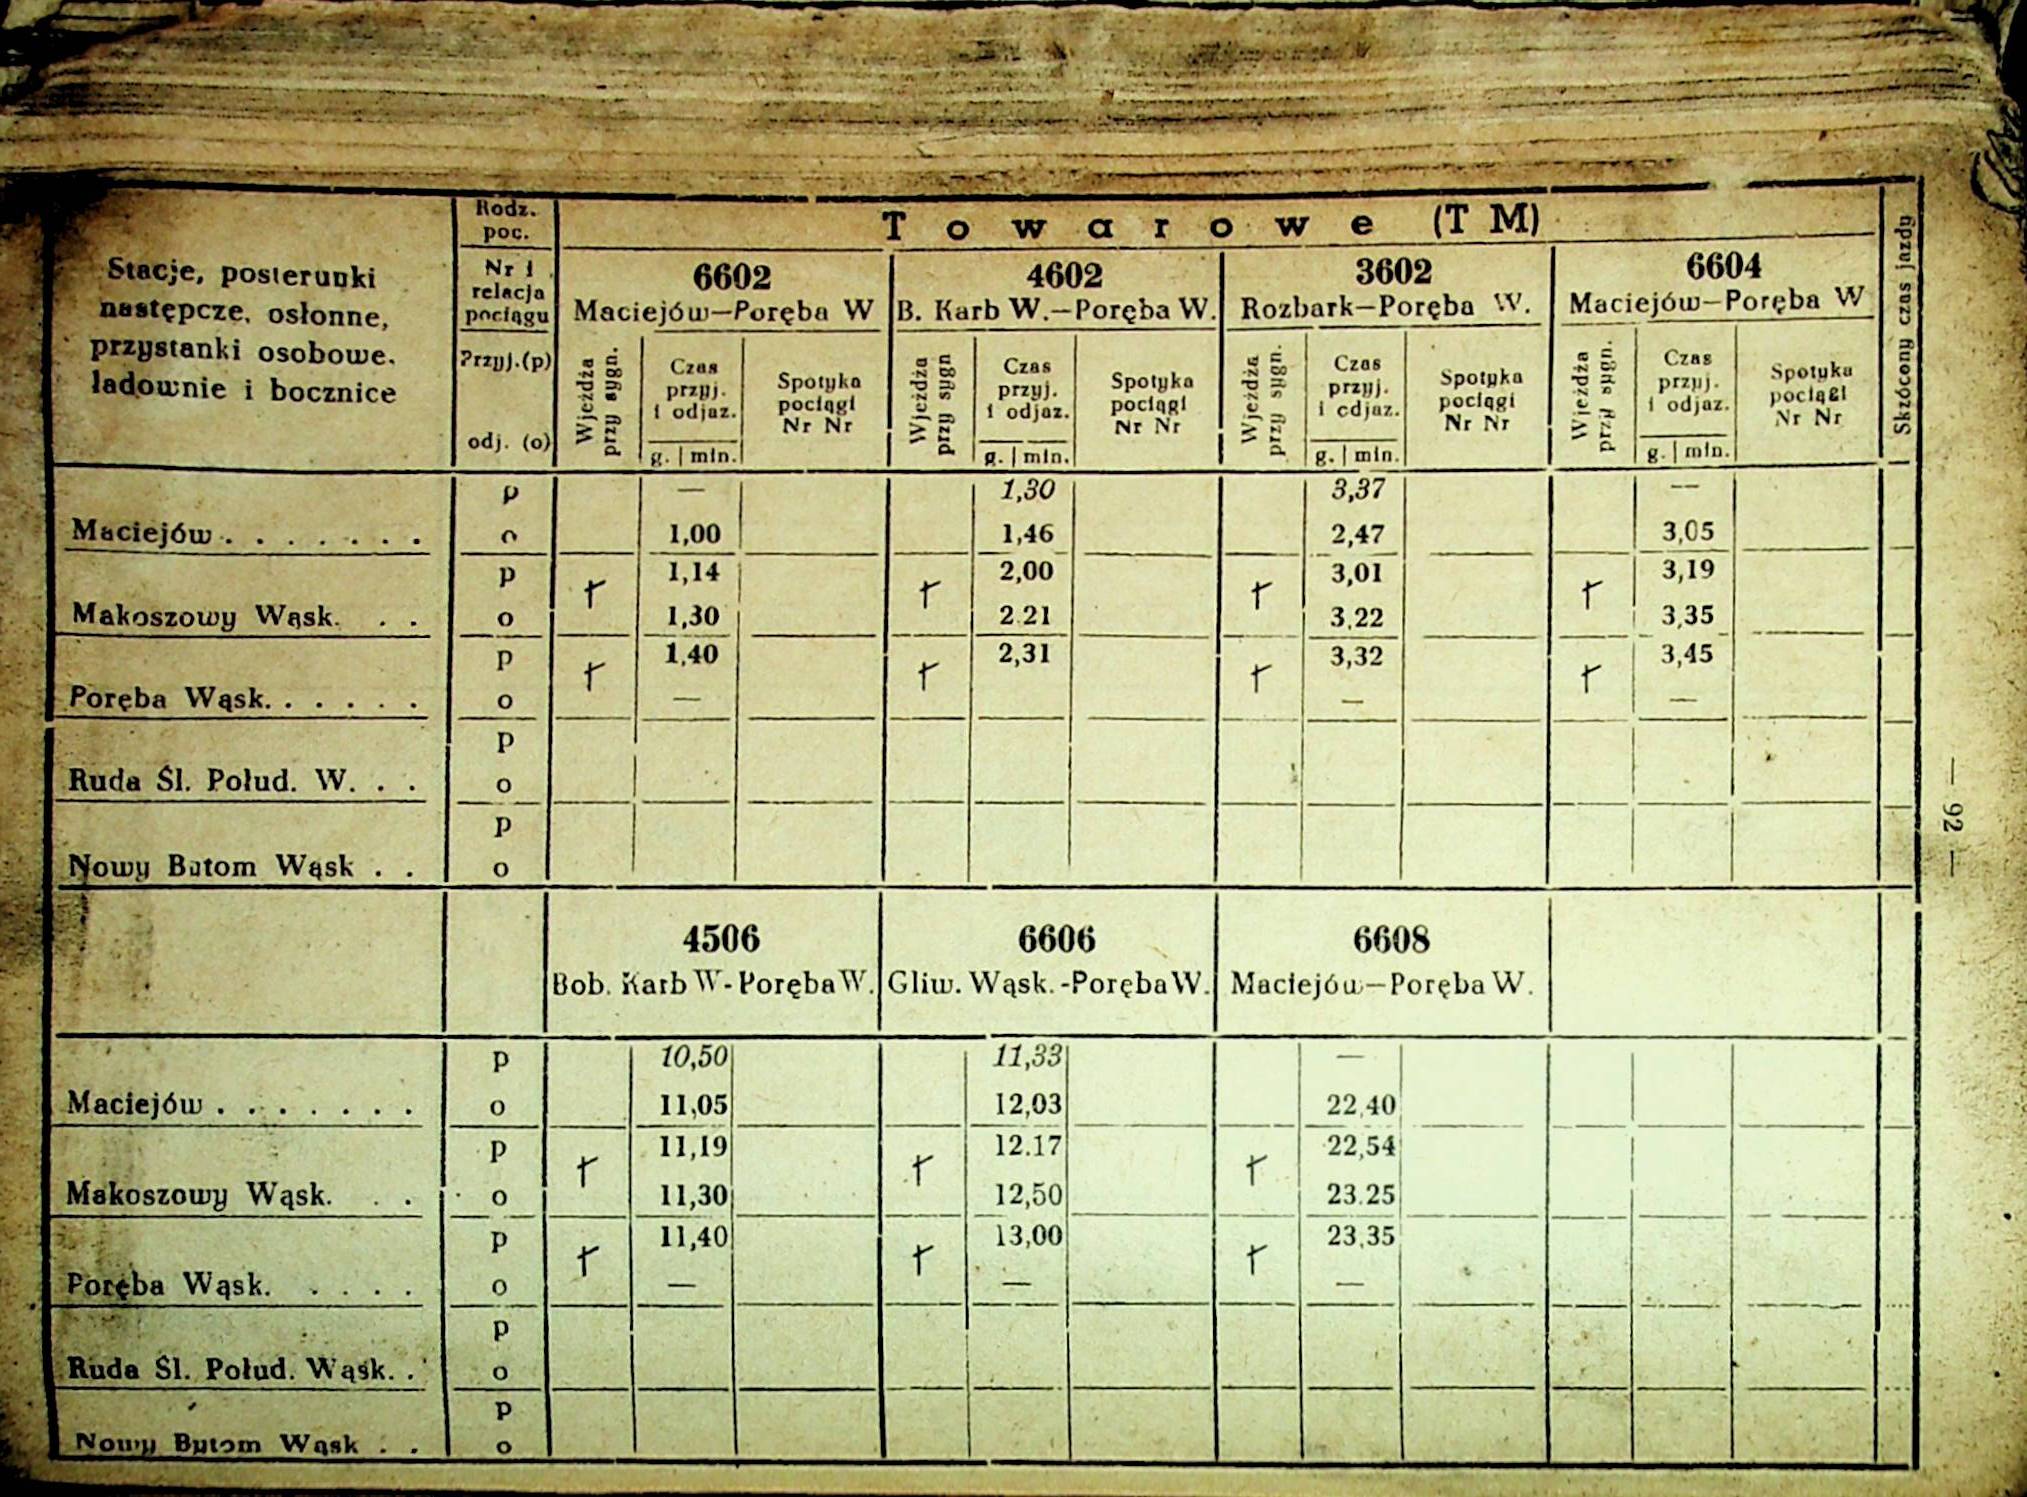 Rodz. poc.
Towarowe (T M)
Stacje, posterunki
następcze, osłonne,
przystanki osobowe.
ładownie i bocznice
Nr i relacja pociągu
Przyj.(p)
odj. (o)
6602 4602 3602 6604
Maciejów—Poręba W B. Karb W.—Poręba W. Rozbark—Poręba W. Maciejów—Poręba W
Wjeżdża przy sygn. Czas przyj. i odjaz. g. | min. Spotyka pociągi Nr Nr
Wjeżdża przy sygn Czas przyj. i odjaz. g. | min. Spotyka pociągi Nr Nr
Wjeżdża przy sygn. Czas przyj. i cdjaz. g. | min. Spotyka pociągi Nr Nr
Wjeżdża przy sygn. Czas przyj. i odjaz. g. | min. Spotyka pociągi Nr Nr
Skrócony czas jazdy
p — 1,30 3,37 —
Maciejów . . . . . . . o 1,00 1,46 2,47 3,05
p 1,14 2,00 3,01 3,19
Makoszowy Wąsk. . . o 1,30 2.21 3,22 3,35
p 1,40 2,31 3,32 3,45
Poręba Wąsk. . . . . . o — — —
p
Ruda Śl. Połud. W. . . o
p
Nowy Bytom Wąsk . . o
— 92 —
4506 6606 6608
Bob. Karb W-Poręba W. Gliw. Wąsk.-Poręba W. Maciejów—Poręba W.
p 10,50 11,33 —
Maciejów . . . . . . . o 11,05 12,03 22,40
p 11,19 12.17 22,54
Makoszowy Wąsk. . . o 11,30 12,50 23.25
p 11,40 13,00 23,35
Poręba Wąsk. . . . . o — — —
p
Ruda Śl. Połud. Wąsk. . o
p
Nowy Bytom Wąsk . . o